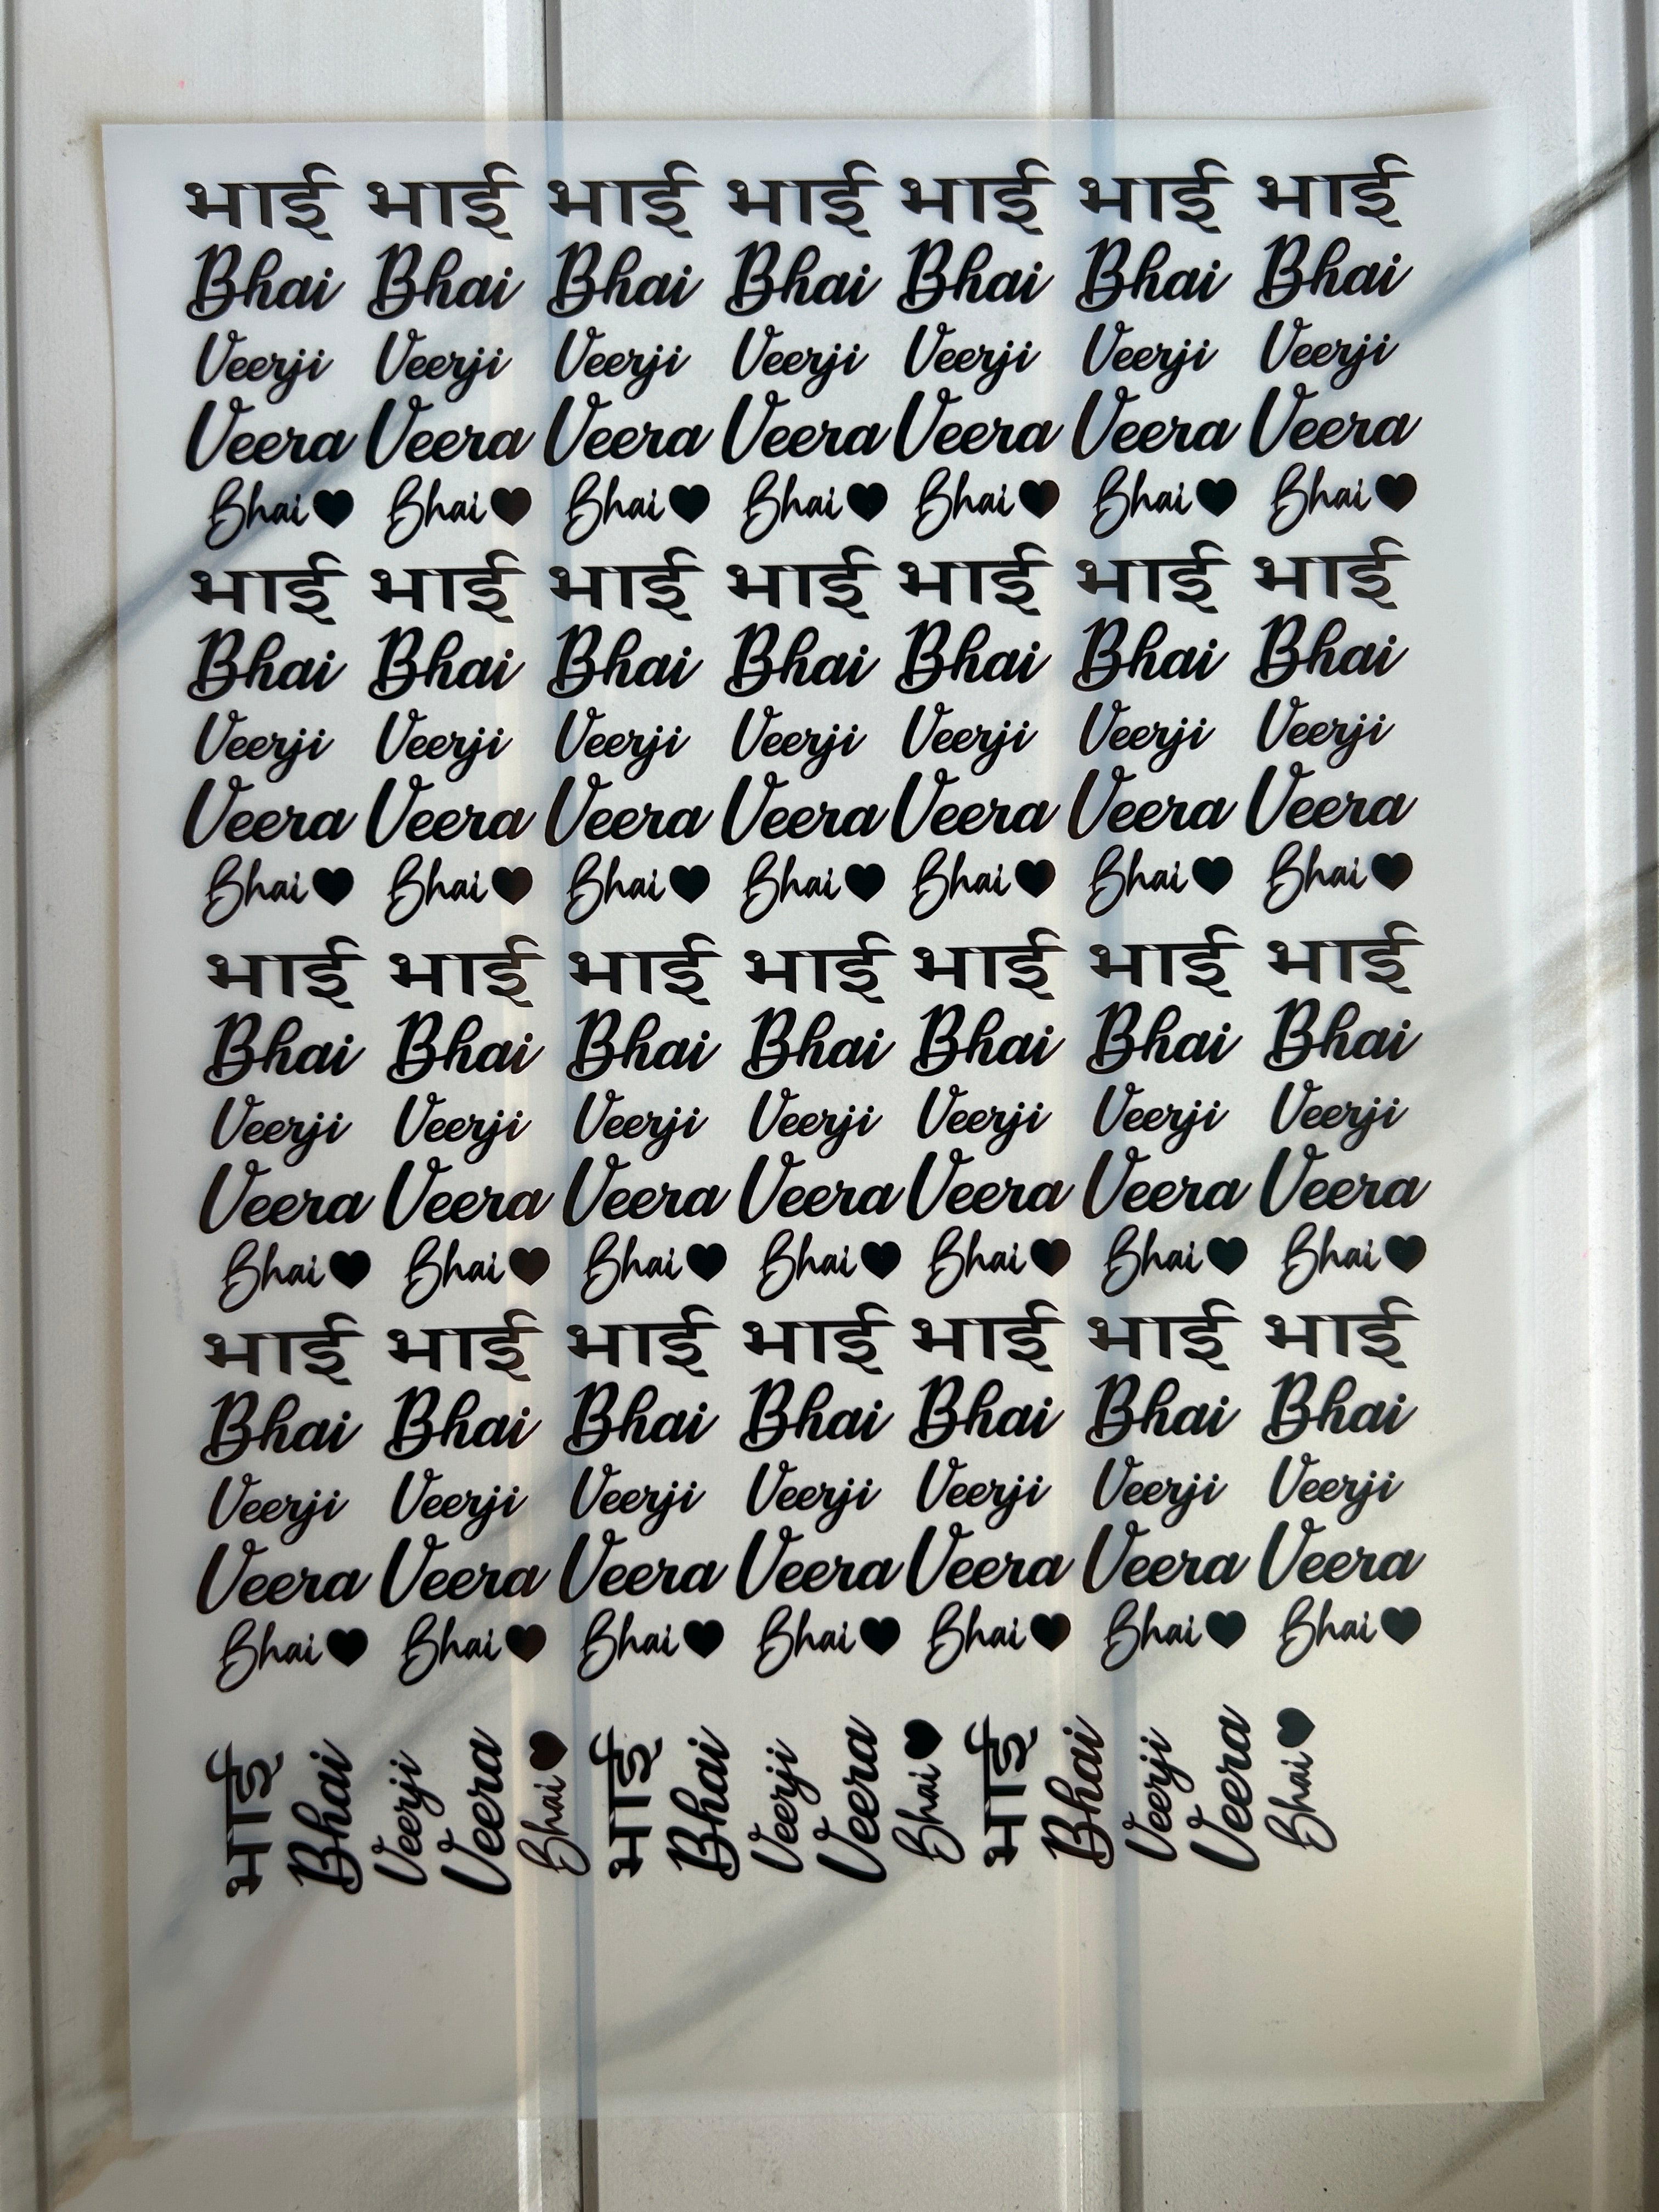 भाई भाई भाई भाई भाई भाई भाई
Bhai Bhai Bhai Bhai Bhai Bhai Bhai
Veerji Veerji Veerji Veerji Veerji Veerji Veerji
Veera Veera Veera Veera Veera Veera Veera
Bhai Bhai Bhai Bhai Bhai Bhai Bhai
भाई भाई भाई भाई भाई भाई भाई
Bhai Bhai Bhai Bhai Bhai Bhai Bhai
Veerji Veerji Veerji Veerji Veerji Veerji Veerji
Veera Veera Veera Veera Veera Veera Veera
Bhai Bhai Bhai Bhai Bhai Bhai Bhai
भाई भाई भाई भाई भाई भाई भाई
Bhai Bhai Bhai Bhai Bhai Bhai Bhai
Veerji Veerji Veerji Veerji Veerji Veerji Veerji
Veera Veera Veera Veera Veera Veera Veera
Bhai Bhai Bhai Bhai Bhai Bhai Bhai
भाई भाई भाई भाई भाई भाई भाई
Bhai Bhai Bhai Bhai Bhai Bhai Bhai
Veerji Veerji Veerji Veerji Veerji Veerji Veerji
Veera Veera Veera Veera Veera Veera Veera
Bhai Bhai Bhai Bhai Bhai Bhai Bhai
भाई
Bhai
Veerji
Veera
Bhai
भाई
Bhai
Veerji
Veera
Bhai
भाई
Bhai
Veerji
Veera
Bhai